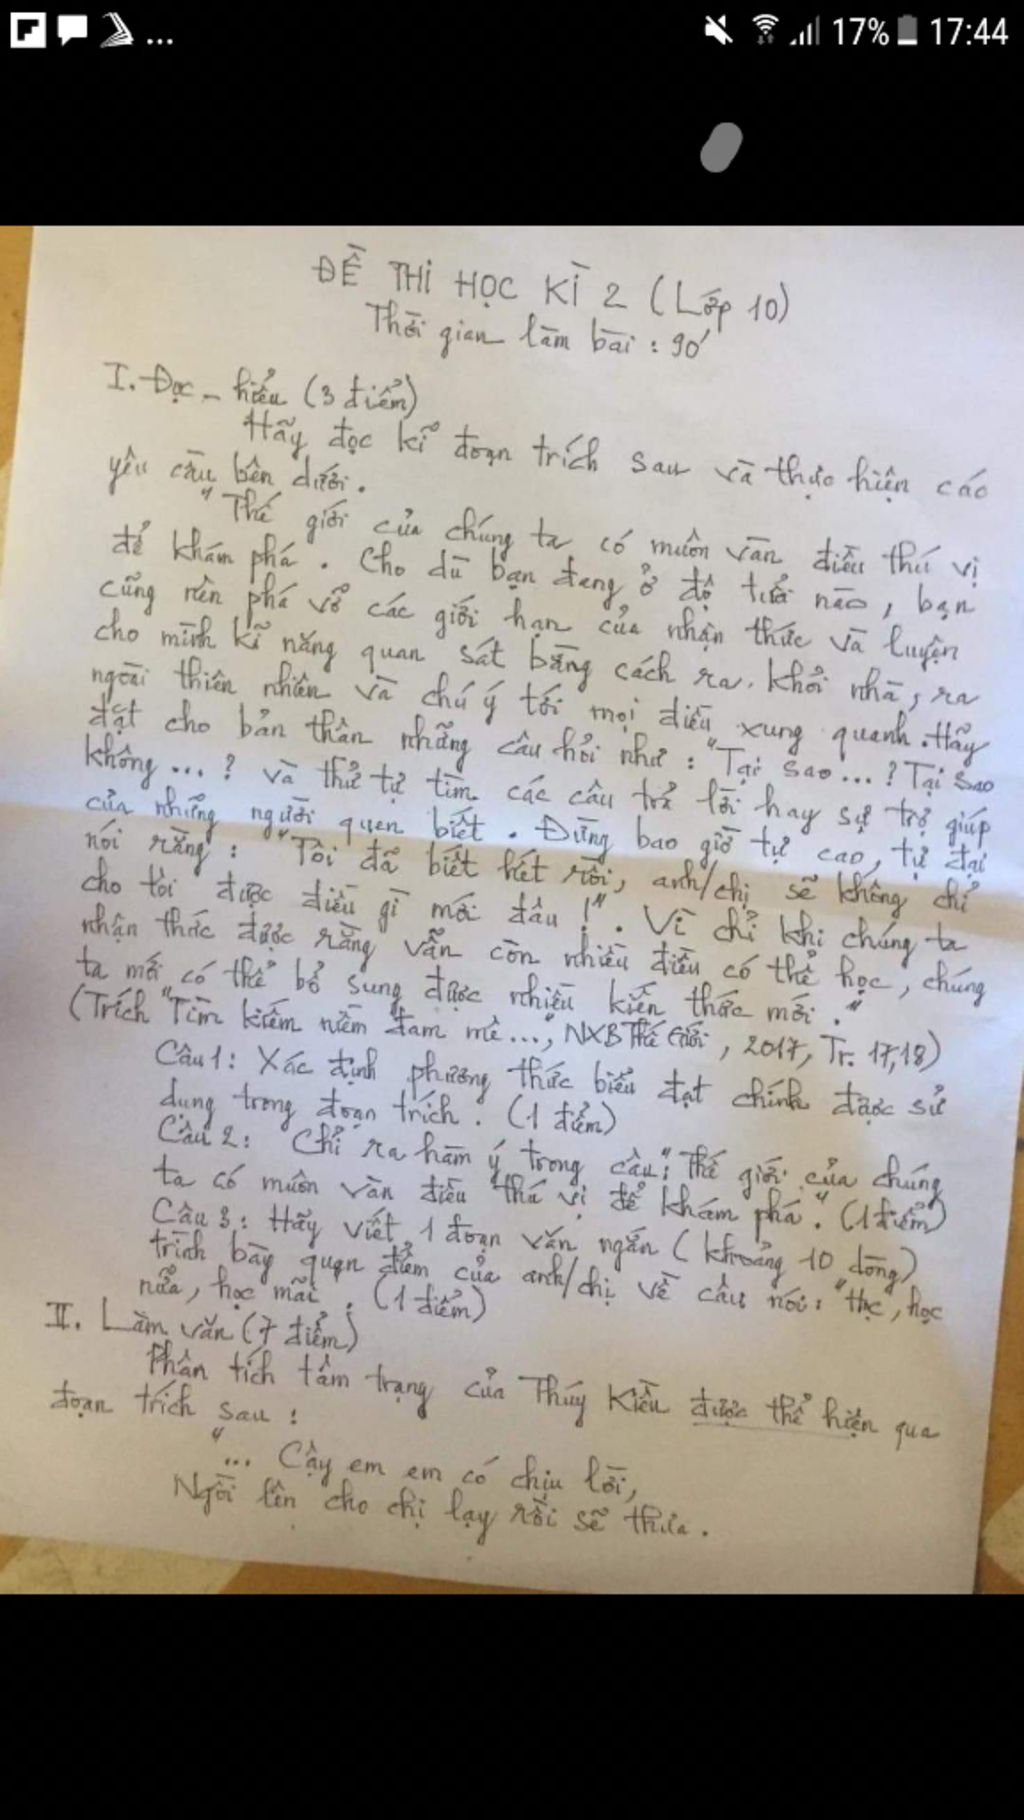 ... 17% 17:44
ĐỀ THI HỌC KÌ 2 (Lớp 10)
Thời gian làm bài : 90'
I. Đọc - hiểu (3 điểm)
Hãy đọc kĩ đoạn trích sau và thực hiện các
yêu cầu bên dưới.
"Thế giới của chúng ta có muôn vàn điều thú vị
để khám phá. Cho dù bạn đang ở độ tuổi nào, bạn
cũng nên phá vỡ các giới hạn của nhận thức và luyện
cho mình kĩ năng quan sát bằng cách ra khỏi nhà, ra
ngoài thiên nhiên và chú ý tới mọi điều xung quanh. Hãy
đặt cho bản thân những câu hỏi như : "Tại sao...? Tại sao
không...? và thử tự tìm các câu trả lời hay sự trợ giúp
của những người quen biết. Đừng bao giờ tự cao, tự đại
nói rằng : "Tôi đã biết hết rồi, anh/chị sẽ không chỉ
cho tôi được điều gì mới đâu !". Vì chỉ khi chúng ta
nhận thức được rằng vẫn còn nhiều điều có thể học, chúng
ta mới có thể bổ sung được nhiều kiến thức mới."
(Trích "Tìm kiếm niềm đam mê...", NXB Thế Giới, 2017, Tr. 17,18)
Câu 1: Xác định phương thức biểu đạt chính được sử
dụng trong đoạn trích. (1 điểm)
Câu 2: Chỉ ra hàm ý trong câu: "Thế giới của chúng
ta có muôn vàn điều thú vị để khám phá". (1 điểm)
Câu 3: Hãy viết 1 đoạn văn ngắn (khoảng 10 dòng)
trình bày quan điểm của anh/chị về câu nói: "Học, học
nữa, học mãi. (1 điểm)
II. Làm văn (7 điểm)
Phân tích tâm trạng của Thúy Kiều được thể hiện qua
đoạn trích sau :
"... Cậy em em có chịu lời,
Ngồi lên cho chị lạy rồi sẽ thưa.